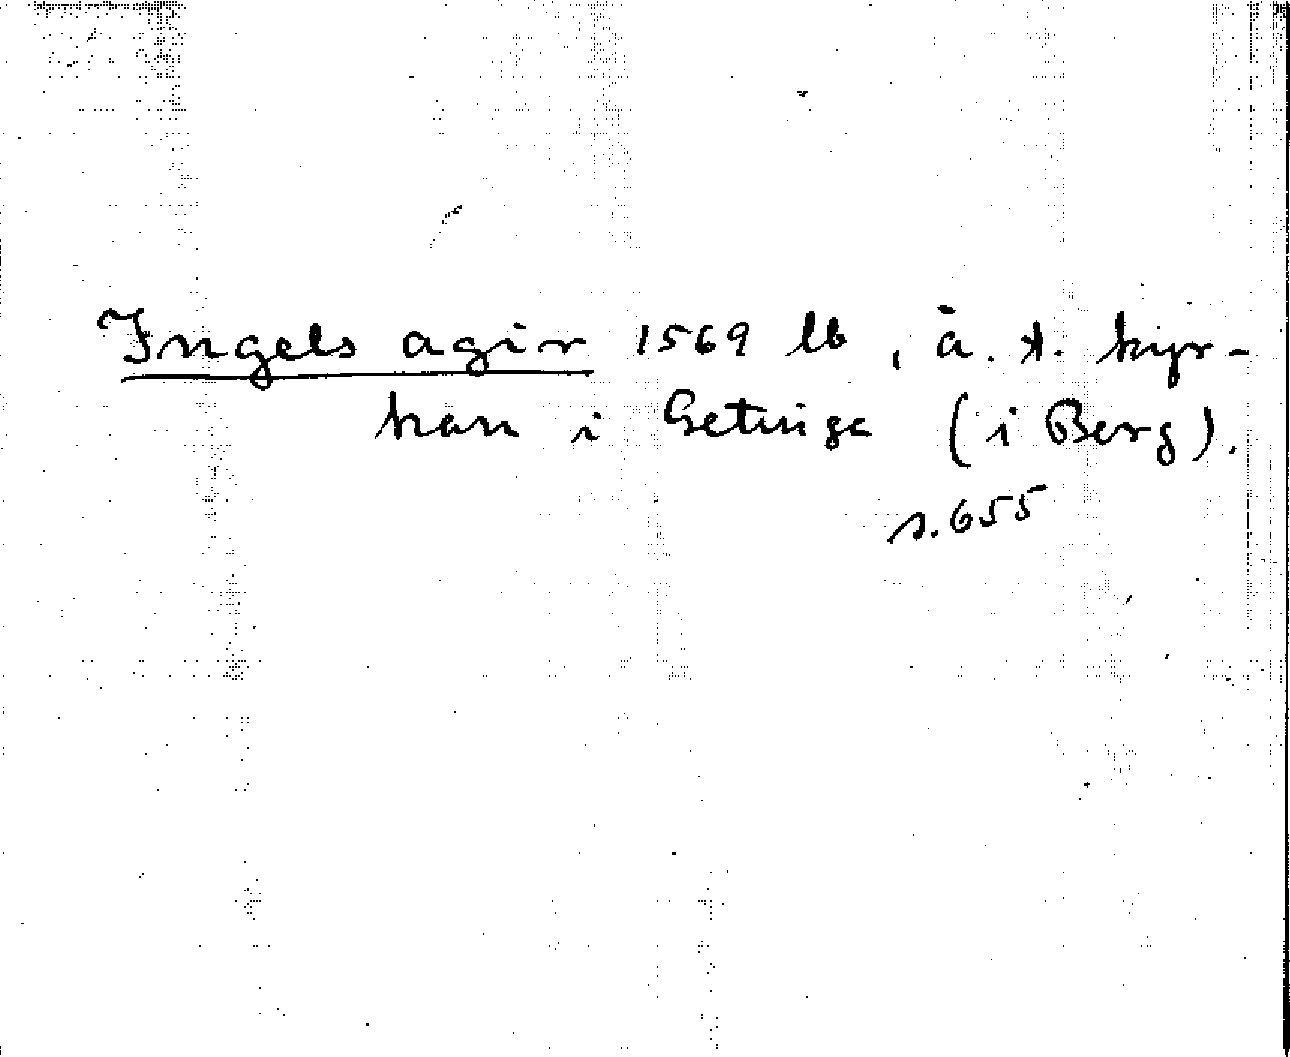 Ingels agir 1569 lb, å. t. kyr-
kan i Getinge (i Berg).
s. 655